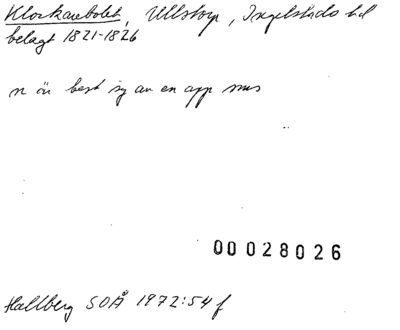 Klockarebolet, Ullstorp, Ingelstads hd
belagt 1821-1826
n är best sg av en app
00028026
Hallberg SOÅ 1972:54 f